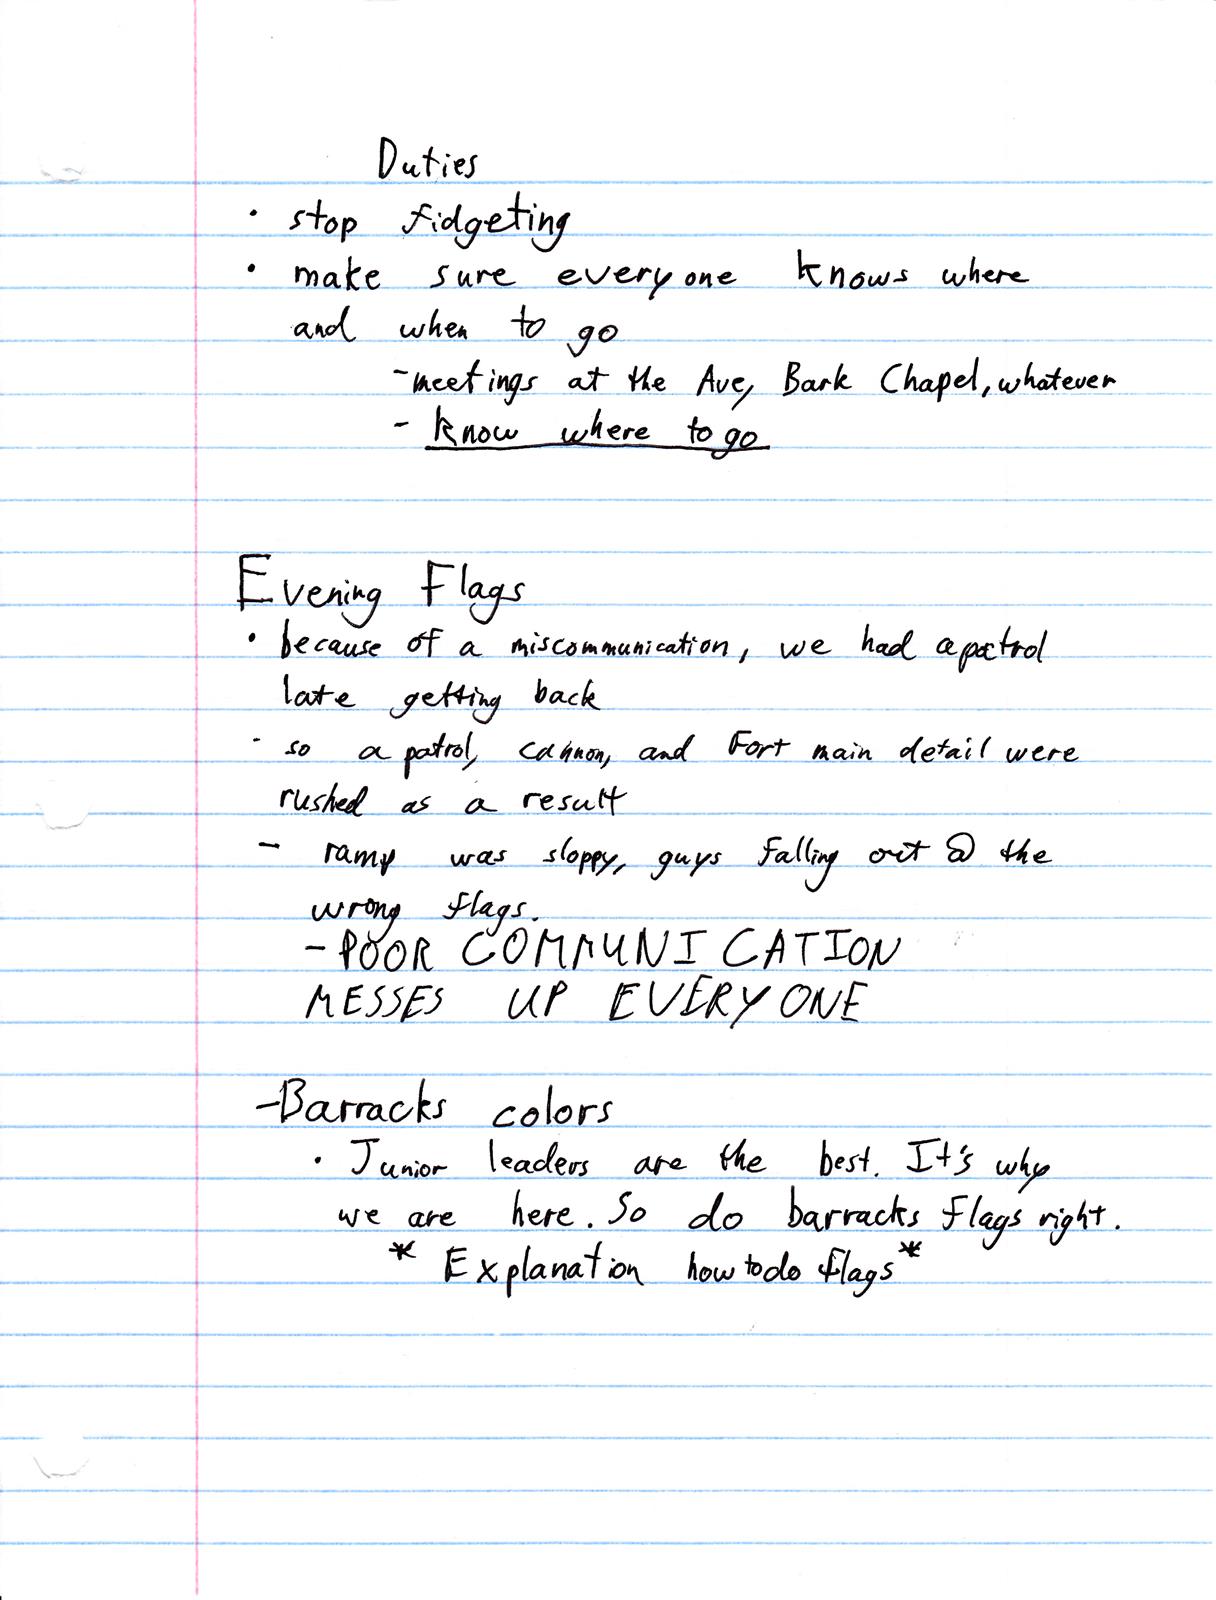 Duties
• stop fidgeting
• make sure everyone knows where
and when to go
- meetings at the Ave, Bark Chapel, whatever
- know where to go
Evening Flags
• because of a miscommunication, we had a patrol
late getting back
- so a patrol, cannon, and Fort main detail were
rushed as a result
- ramp was sloppy, guys falling out @ the
wrong flags.
- POOR COMMUNICATION
MESSES UP EVERYONE
- Barracks colors
• Junior leaders are the best. It's why
we are here. So do barracks flags right.
* Explanation how to do flags *